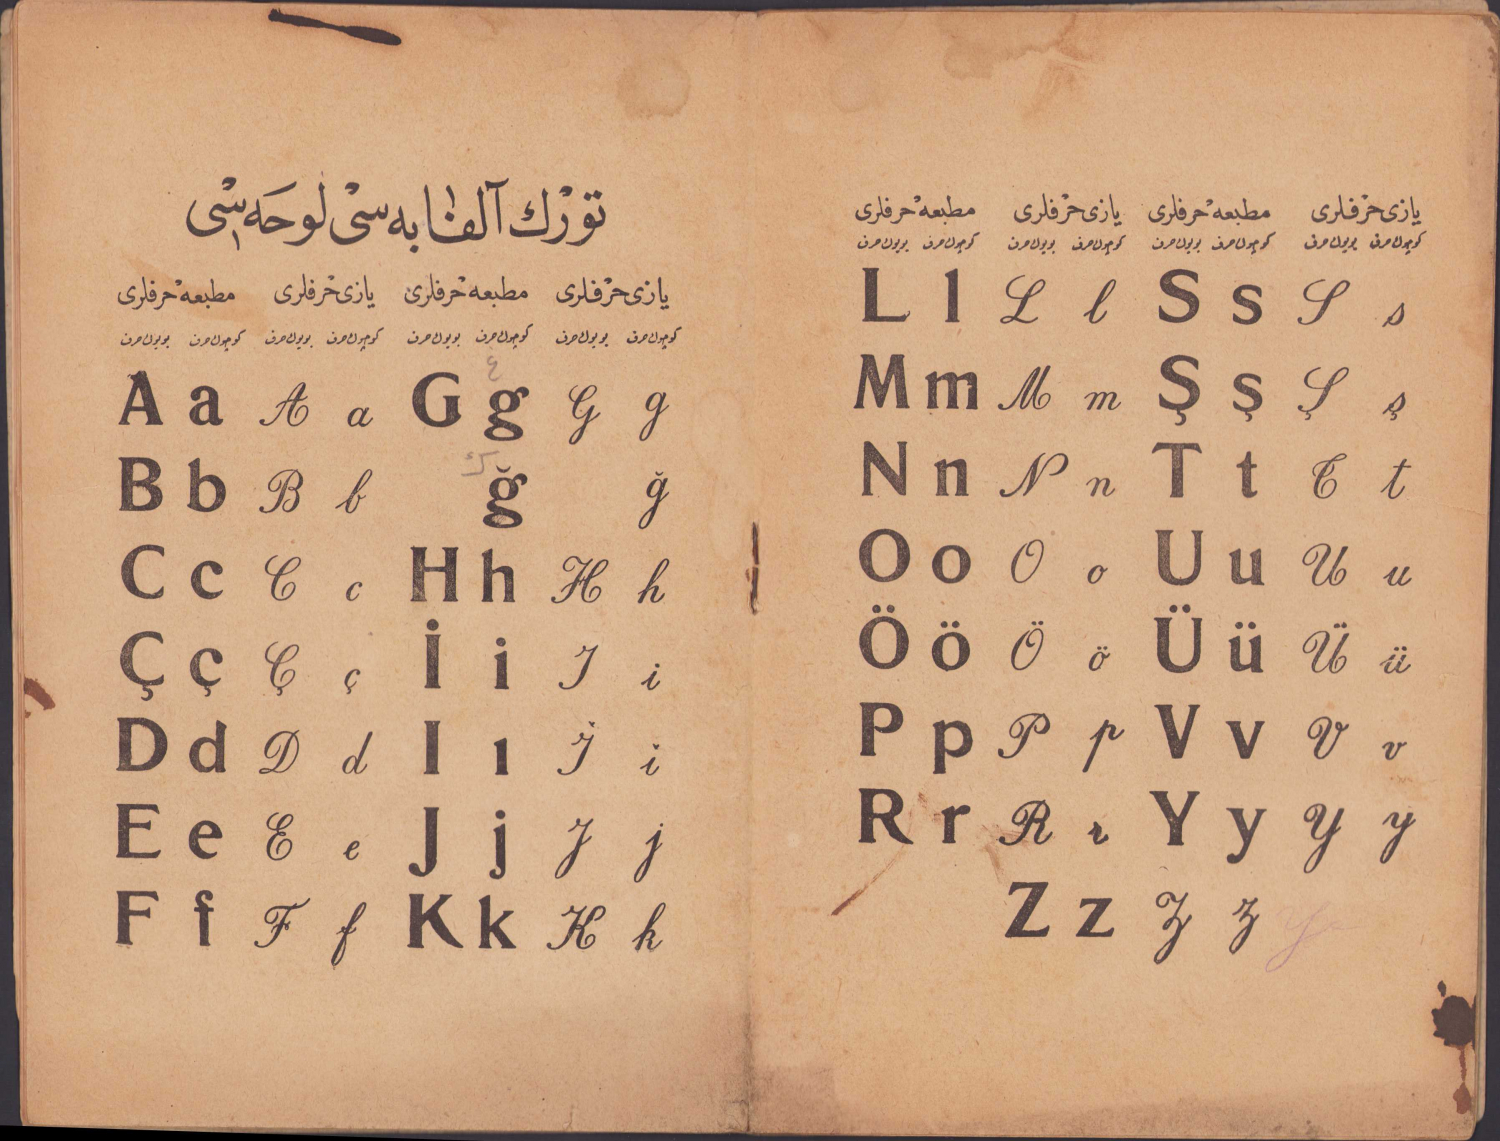 تورك آلفابه‌سی لوحه‌سی
مطبعه حرفلری یازی حرفلری مطبعه حرفلری یازی حرفلری
بویوك حرف كوچوك حرف بویوك حرف كوچوك حرف بویوك حرف كوچوك حرف بویوك حرف كوچوك حرف
ع
A a A a G g G g
ك
B b B b ğ ğ
C c C c H h H h
Ç ç Ç ç İ i I i
D d D d I ı İ i
E e E e J j J j
F f F f K k K k
مطبعه حرفلری یازی حرفلری مطبعه حرفلری یازی حرفلری
بویوك حرف كوچوك حرف بویوك حرف كوچوك حرف بویوك حرف كوچوك حرف بویوك حرف كوچوك حرف
L l L l S s S s
M m M m Ş ş Ş ş
N n N n T t T t
O o O o U u U u
Ö ö Ö ö Ü ü Ü ü
P p P p V v V v
R r R r Y y Y y
Z z Z z